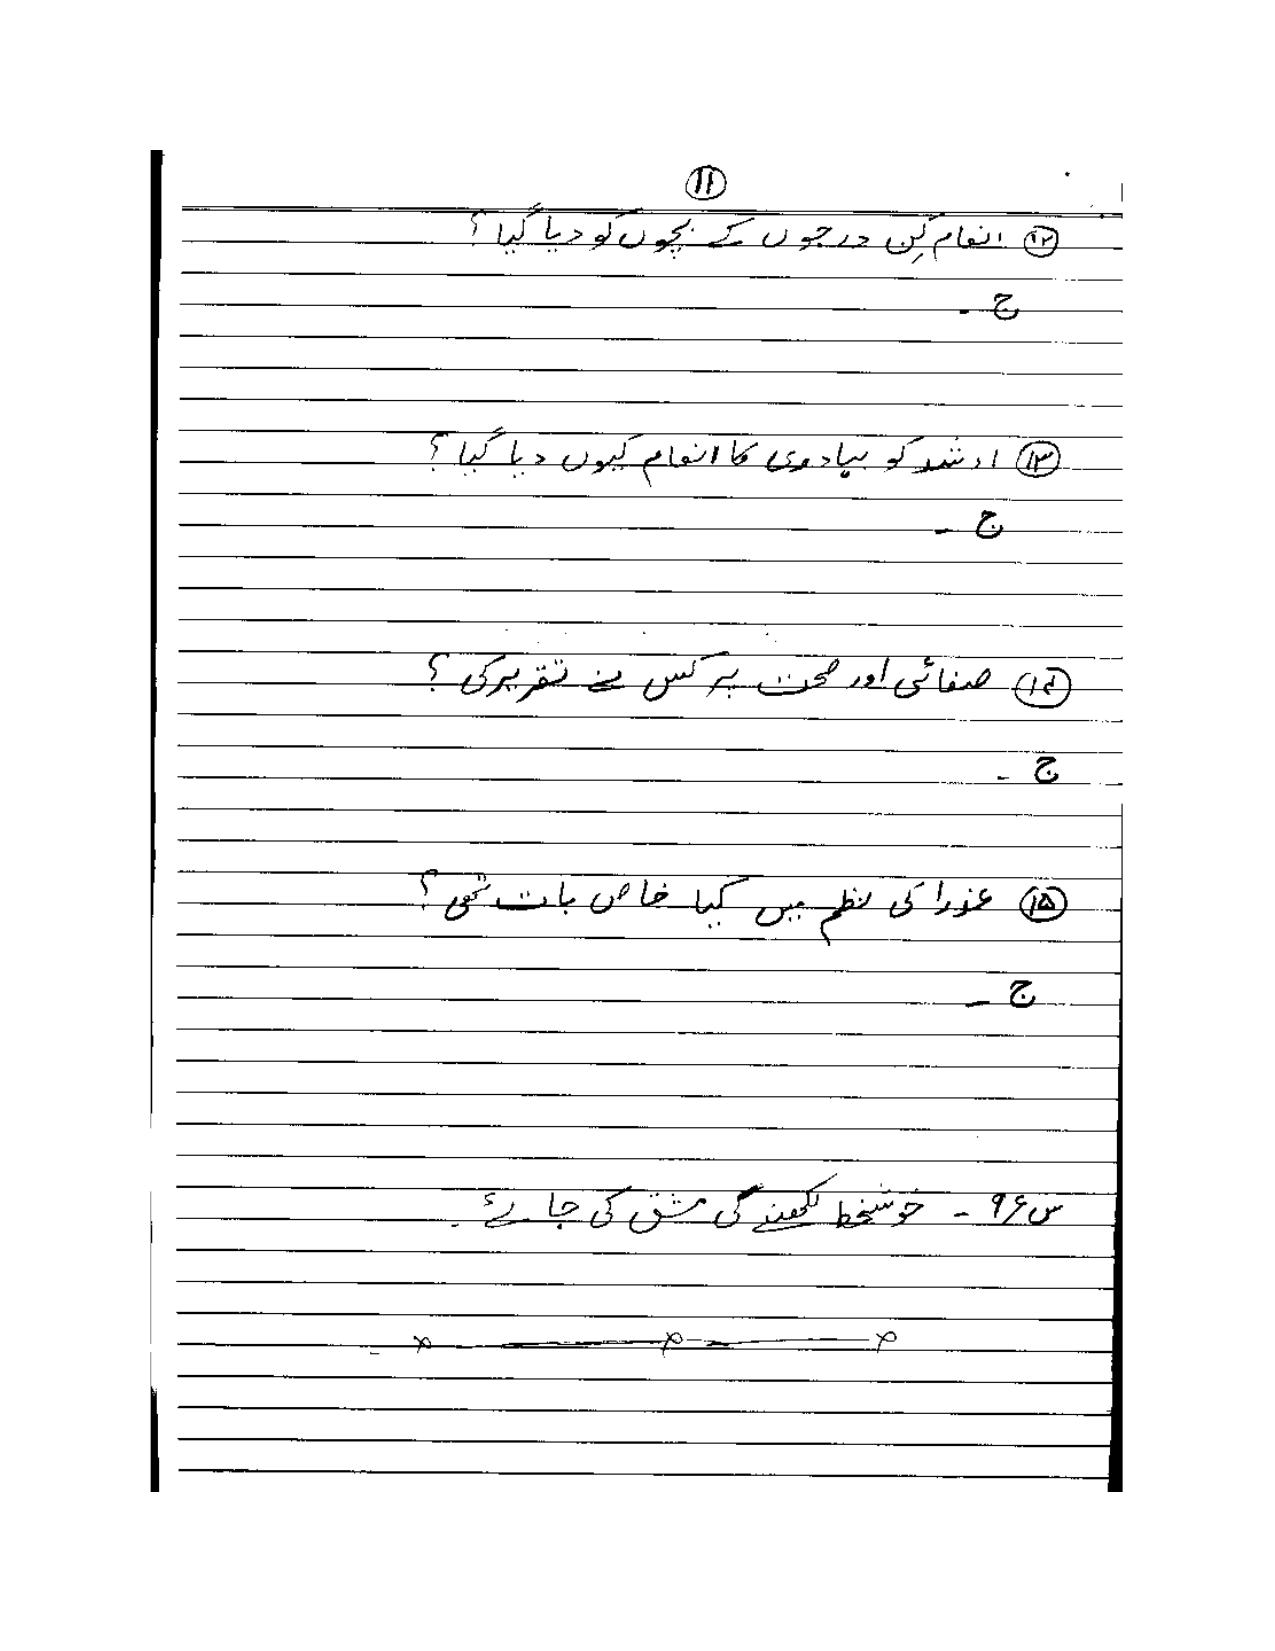 ۱۱
۱۲ انعام کِن درجوں کے بچّوں کو دیا گیا ؟
ج -
۱۳ ارشد کو بہادری کا انعام کیوں دیا گیا ؟
ج -
۱۴ صفائی اور صحت پر کس نے تقریر کی ؟
ج -
۱۵ عذرا کی نظم میں کیا خاص بات تھی ؟
ج -
خوشخط لکھنے کی مشق کی جائے -